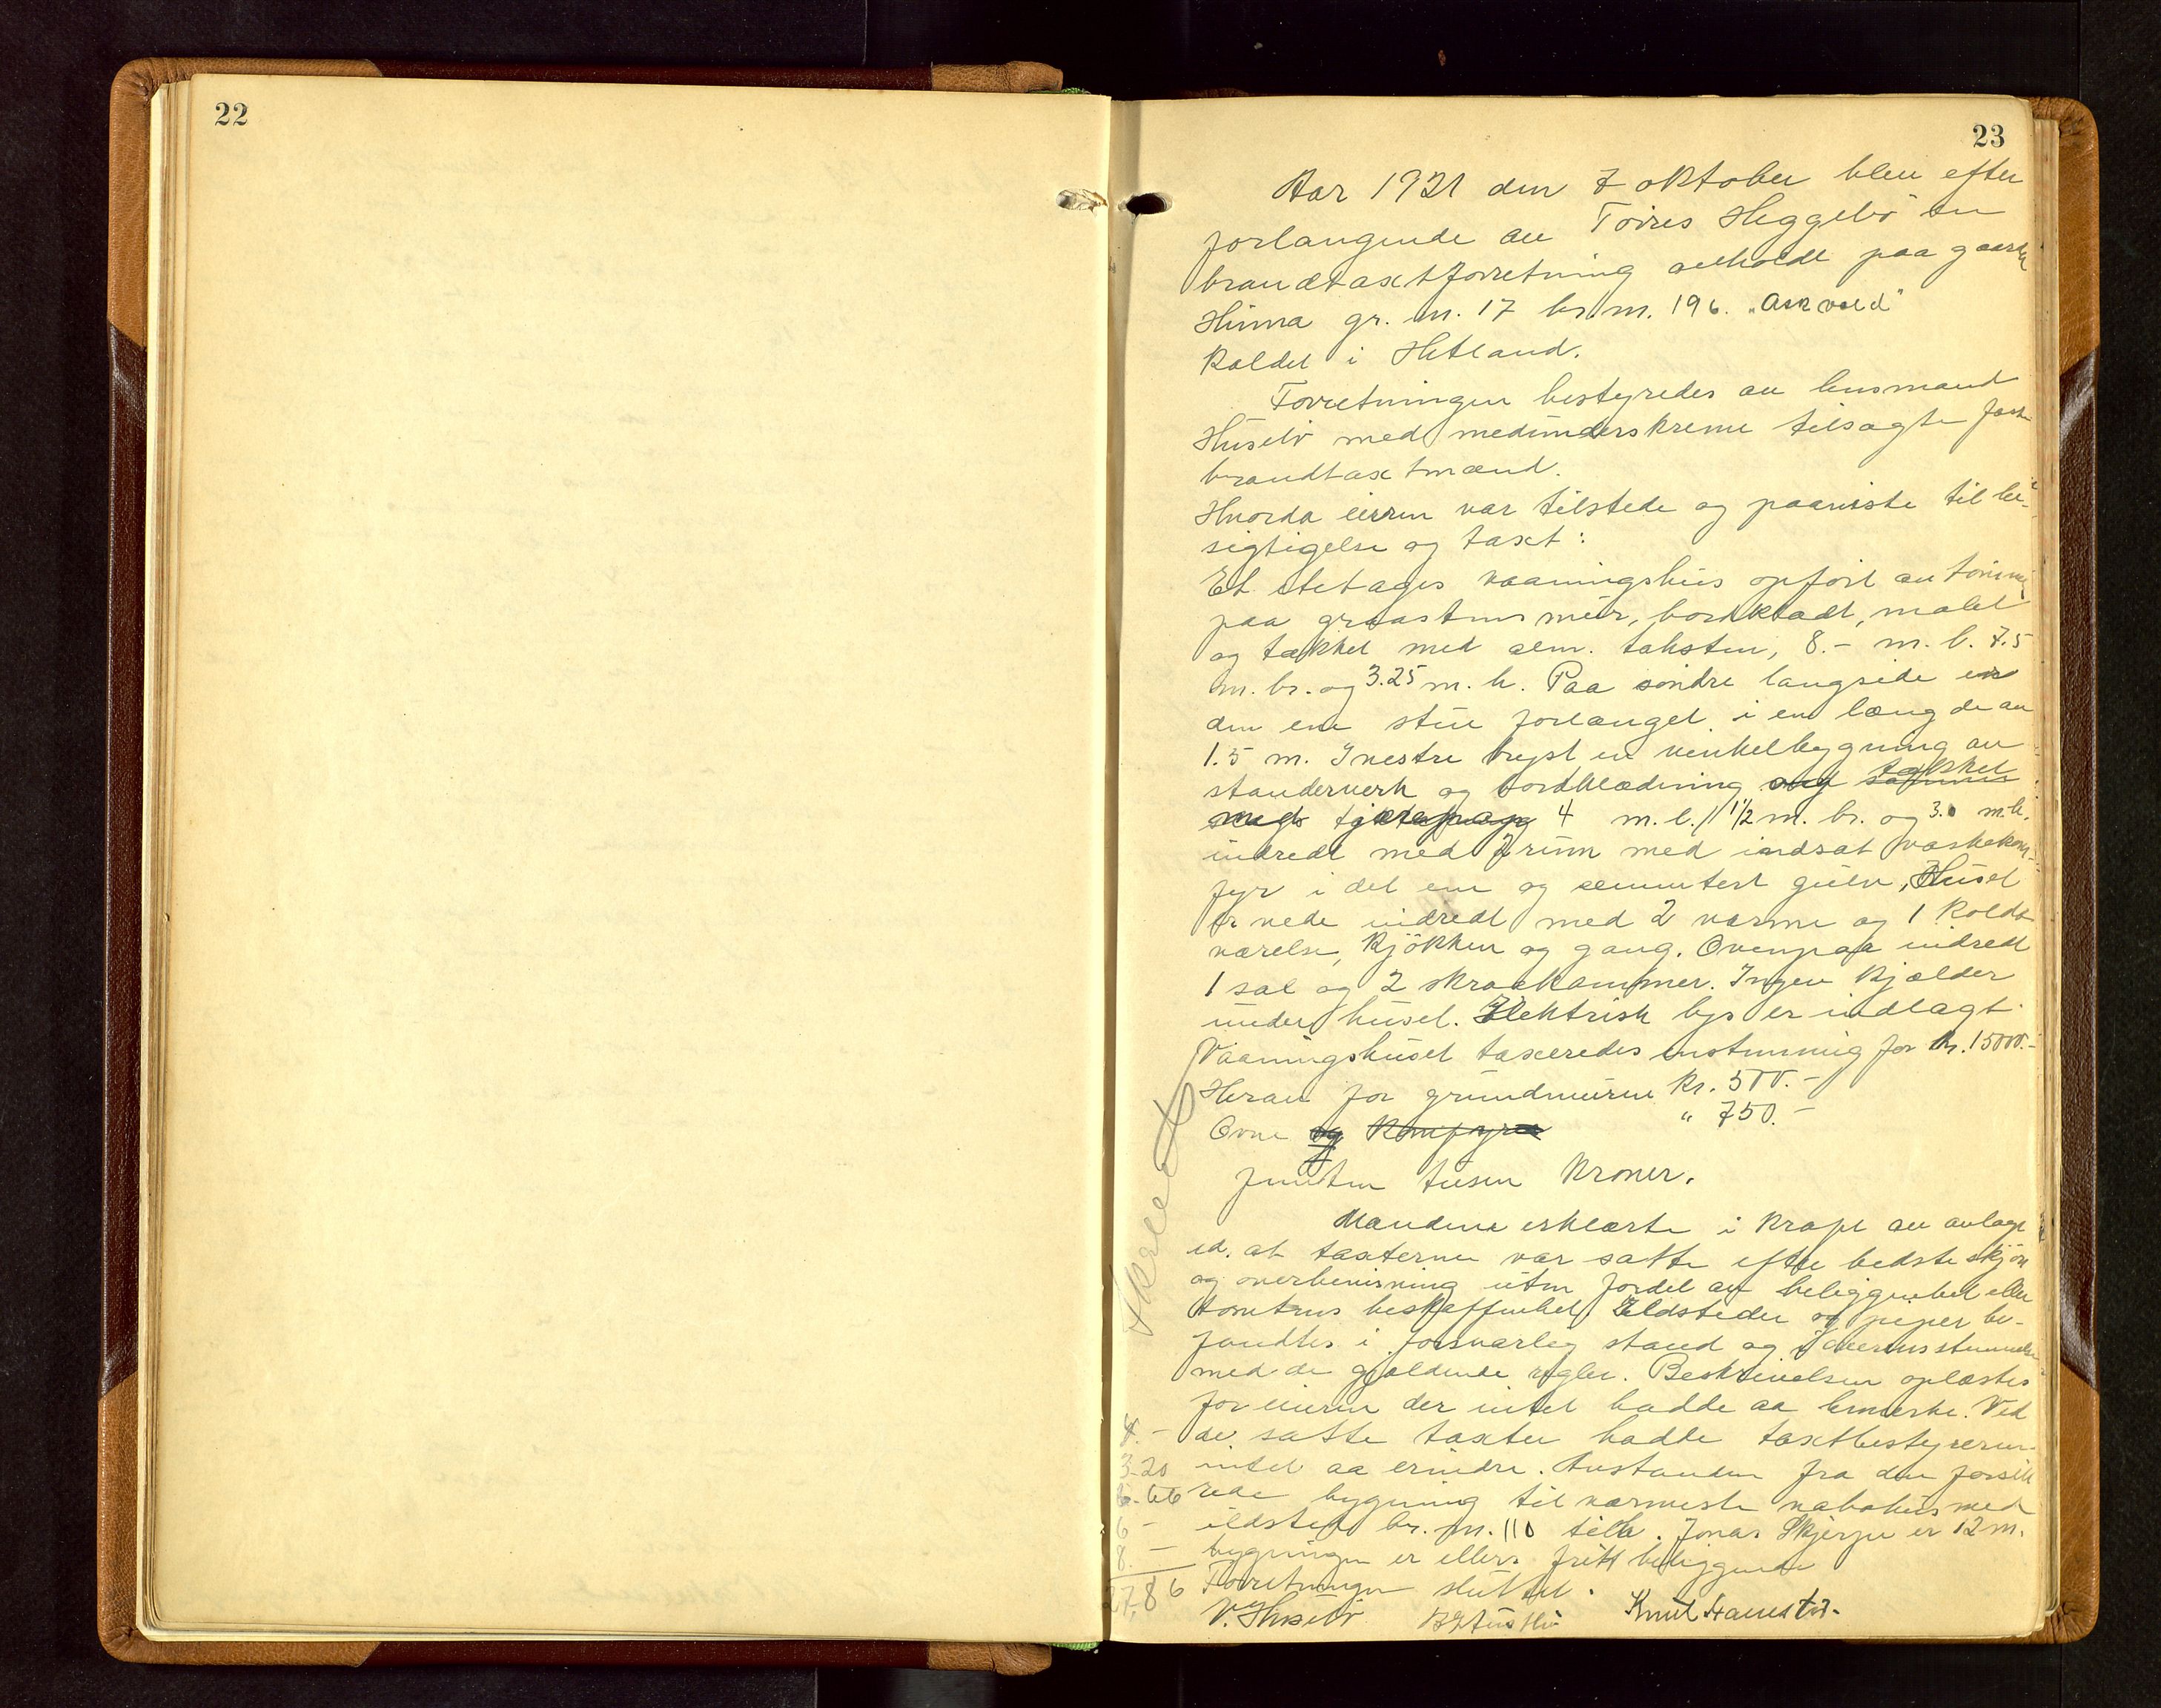 22
23
Aar 1921 den 7 oktober blev efter
forlangende av Torres Heggebö en
brandtaxtforretning avholdt paa gaarden
Hinna gr. m. 17 br. m. 196. "Askvold"
kaldet i Hetland.
Forretningen bestyredes av lensmand
Husebö med medunderskrevne tilsagte faste
brandtaxtmænd.
Hvorda eieren var tilstede og paaviste til be-
sigtigelse og taxt:
Et etetages vaaningshus opfört av tömmer
paa graastensmur, bordklædt, malet
og tækket med alm. taksten, 8.- m. l. 7.5
m. br. og 3.25 m. h. Paa söndre langside er
den ene stue forlænget i en længde av
1.5 m. I vestre bryst en vinkelbygning av
standerverk og bordklædning og samme tækket
med tjærepap 4 m. l. 1 1/2 m. br. og 3.0 m. h.
indredt med 2 rum med indsat vaskekom-
fyr i det ene og cementert gulv, Huset
er nede indredt med 2 varme og 1 koldt
værelse, kjökken og gang. Ovenpaa indredt
1 sal og 2 skraakammer. Ingen kjælder
under huset. Elektrisk lys er indlagt.
Vaaningshuset taxeredes enstemmig for kr. 15000.-
Herav for grundmuren kr. 500.-
Ovne og komfyrer " 750.-
femten tusen kroner.
Mændene erklærte i kraft av avlagt
ed. at taxterne var satte efter bedste skjön
og overbevisning uten fordel av beliggenhet eller
tomtens beskaffenhet Ildsteder og piper be-
fandtes i forsvarlig stand og i overensstemmelse
med de gjældende regler. Beskrivelsen oplæstes
for eieren der intet hadde aa bemerke. Ved
de satte taxter hadde taxtbestyreren
intet aa erindre. Avstanden fra den forsik
rede bygning til nærmeste nabohus med
ildsted br. m. 110 tilh. Jonas Skjerpe er 12 m.
bygningen er ellers fritt beliggende
Forretningen sluttet.
V. Husebö Knut Haugstad.
8.-
3.20
6.66
6-
8.-
27,86